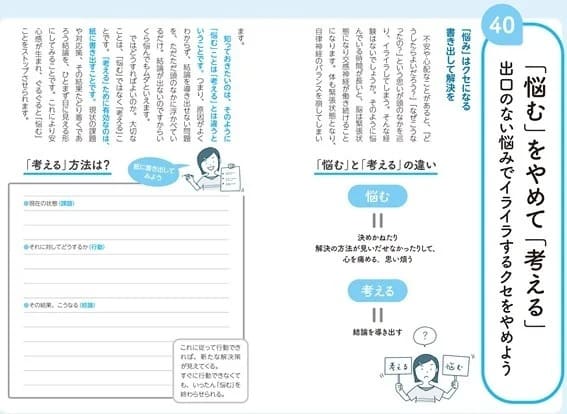 40
「悩む」をやめて「考える」
出口のない悩みでイライラするクセをやめよう
「悩み」はクセになる
書き出して解決を
不安や心配なことがあると、「ど
うしたらよいだろう?」「なぜこうな
ったの?」という思いが頭のなかを巡
り、イライラしてしまう。そんな経
験はないでしょうか。そのように悩
んでいる時間が長いと、脳は緊張状
態になり交感神経が働き続けること
になります。体も緊張状態となり、
自律神経のバランスを崩してしまい
ます。
知っておきたいのは、そのように
「悩む」ことは「考える」とは違うと
いうことです。つまり、原因がよく
わからず、結論を導き出せない問題
を、ただただ頭のなかに浮かべてい
るだけ。結論が出ないのですからい
くら悩んでもムダといえます。
ではどうすればよいのか。大切な
ことは、「悩む」ではなく「考える」こ
とです。「考える」ために有効なのは、
紙に書き出すことです。現状の課題
や対応策、その結果たどり着くであ
ろう結論を、ひとまず目に見える形
にしてみることです。これにより安
心感が生まれ、ぐるぐると「悩む」
ことをストップさせられます。
「悩む」と「考える」の違い
悩む
決めかねたり
解決の方法が見いだせなかったりして、
心を痛める、思い煩う
考える
結論を導き出す
?
考える
悩む
「考える」方法は?
紙に書き出して
みよう
●現在の状態(課題)
●それに対してどうするか(行動)
●その結果、こうなる(結論)
これに従って行動でき
れば、新たな解決策
が見えてくる。
すぐに行動できなくて
も、いったん「悩む」を
終わらせられる。